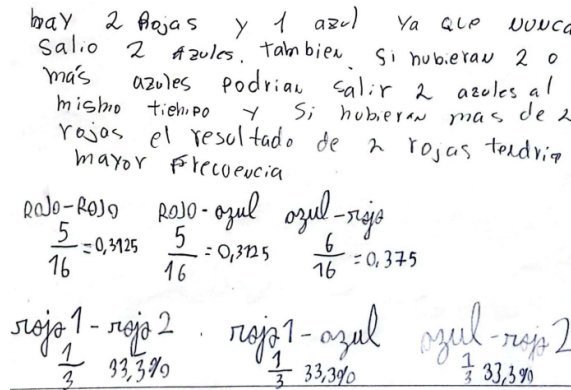 hay 2 Rojas y 1 azul Ya que nunca
salio 2 azules. tambien si hubieran 2 o
más azules podrian salir 2 azules al
mismo tiempo y si hubieran mas de 2
rojas el resultado de 2 rojas tendria
mayor frecuencia
ROJO-ROJO ROJO-azul azul-rojo
5/16 = 0,3125 5/16 = 0,3125 6/16 = 0,375
rojo1 - rojo2 . rojo1 - azul azul-rojo2
1/3 33,3% 1/3 33,3% 1/3 33,3%